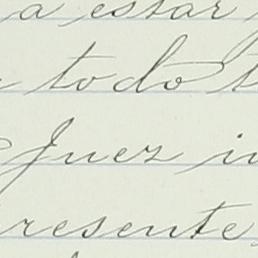 a estar
todo
Juez
resente